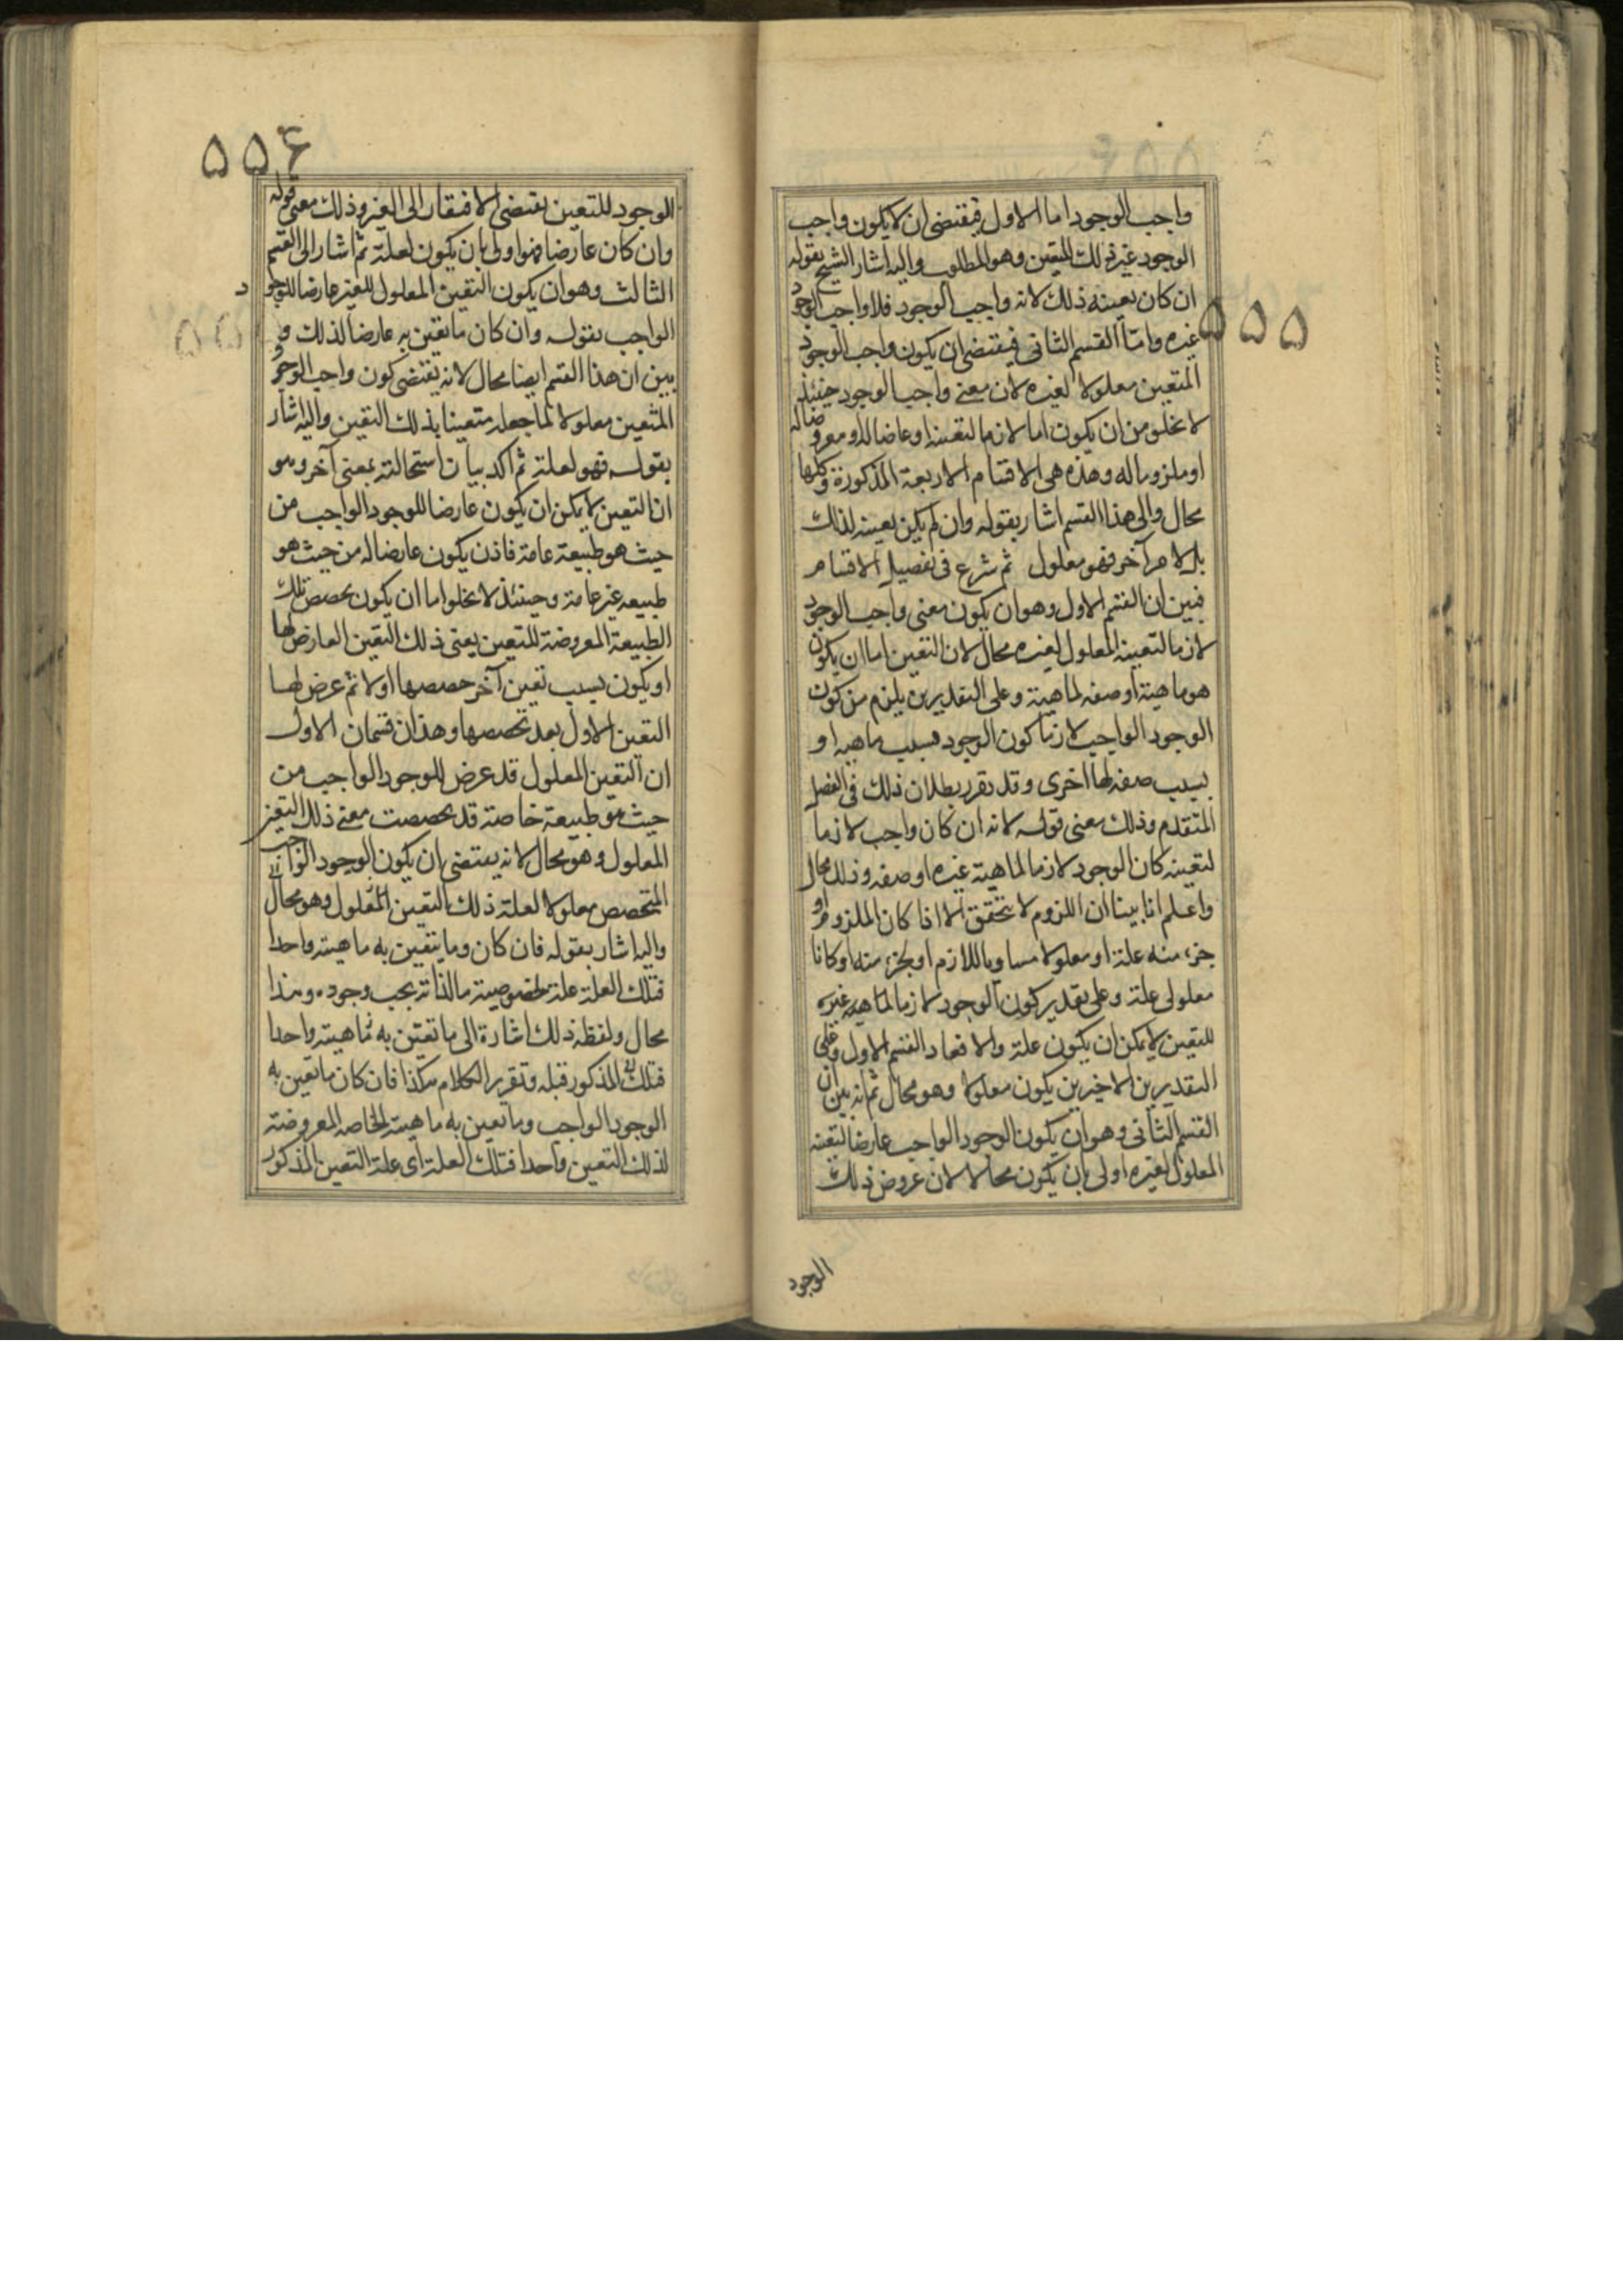 ۵۵۵
واجب الوجود اما الاول فيقتضى ان لا يكون واجب
الوجود غير ذلك المتعين وهو المطلوب واليه اشار الشيخ بقوله
ان كان تعينه ذلك لانه واجب الوجود فلا واجب الوجود
غيره واما القسم الثانى فيقتضى ان يكون واجب الوجود
المتعين معلولا لغيره لان معنى واجب الوجود حينئذ
لا يخلو من ان يكون اما لازما لتعينه او عارضا له او معروضا له
او ملزوما له وهذه هى الاقسام الاربعة المذكورة وكلها
محال والى هذا القسم اشار بقوله وان لم يكن تعينه لذلك
بل لامر آخر فهو معلول ثم شرع فى تفصيل الاقسام
فبين ان القسم الاول وهو ان يكون معنى واجب الوجود
لازما لتعينه المعلول لغيره محال لان التعين اما ان يكون
هو ماهيته او صفه لماهيته وعلى التقديرين يلزم من كون
الوجود الواجب لازما كون الوجود بسبب ماهيه او
بسبب صفه لها اخرى وقد تقرر بطلان ذلك فى الفصل
المتقدم وذلك معنى قوله لانه ان كان واجب لازما
لتعينه كان الوجود لازما لماهية غيره او صفه وذلك محال
واعلم انا بينا ان اللزوم لا يتحقق الا اذا كان الملزوم او
جزء منه علة او معلولا مساويا للازم او لجزء منه او كانا
معلولى علة وعلى تقدير كون الوجود لازما لماهيه غيره
للتعين لا يمكن ان يكون علة والا لعاد القسم الاول وعلى
التقديرين الاخيرين يكون معلولا وهو محال ثم انه بين ان
القسم الثانى وهو ان يكون الوجود الواجب عارضا لتعينه
المعلول لغيره اولى بان يكون محالا لان عروض ذلك
الوجود
۵۵۶
الوجود للتعين يقتضى الافتقار الى الغير وذلك معنى قوله
وان كان عارضا فهو اولى بان يكون لعلة ثم اشار الى القسم
الثالث وهو ان يكون التعين المعلول للغير عارضا للوجود
الواجب بقوله وان كان ما يتعين به عارضا لذلك و
بين ان هذا القسم ايضا محال لانه يقتضى كون واجب الوجود
المتعين معلولا لما جعله متعينا بذلك التعين واليه اشار
بقوله فهو لعلة ثم اكد بيان استحالته بمعنى آخر وهو
ان التعين لا يمكن ان يكون عارضا للوجود الواجب من
حيث هو طبيعة عامة فاذن يكون عارضا له من حيث هو
طبيعه غير عامة وحينئذ لا يخلوا اما ان يكون تخصص تلك
الطبيعة المعروضة للتعين يعنى ذلك التعين العارض لها
او يكون بسبب تعين آخر خصصها اولا ثم عرض لها
التعين الاول بعد تخصصها وهذان قسمان الاول
ان التعين المعلول قد عرض للوجود الواجب من
حيث هو طبيعة خاصة قد تخصصت بعين ذلك التعين
المعلول وهو محال لانه يقتضى ان يكون الوجود الواجب
المتخصص معلولا لعلة ذلك التعين المعلول وهو محال
واليه اشار بقوله فان كان وما يتعين به ماهيته واحدا
فتلك العلة علة لخصوصية ما لذاته يجب وجوده وهذا
محال ولفظه ذلك اشارة الى ما تعين به ماهيته واحدا
فتلك المذكور قبله وتقرير الكلام هكذا فان كان ما تعين به
الوجود الواجب وما تعين به ماهيته الخاصه المعروضة
لذلك التعين واحدا فتلك العلة اى علة التعين المذكور